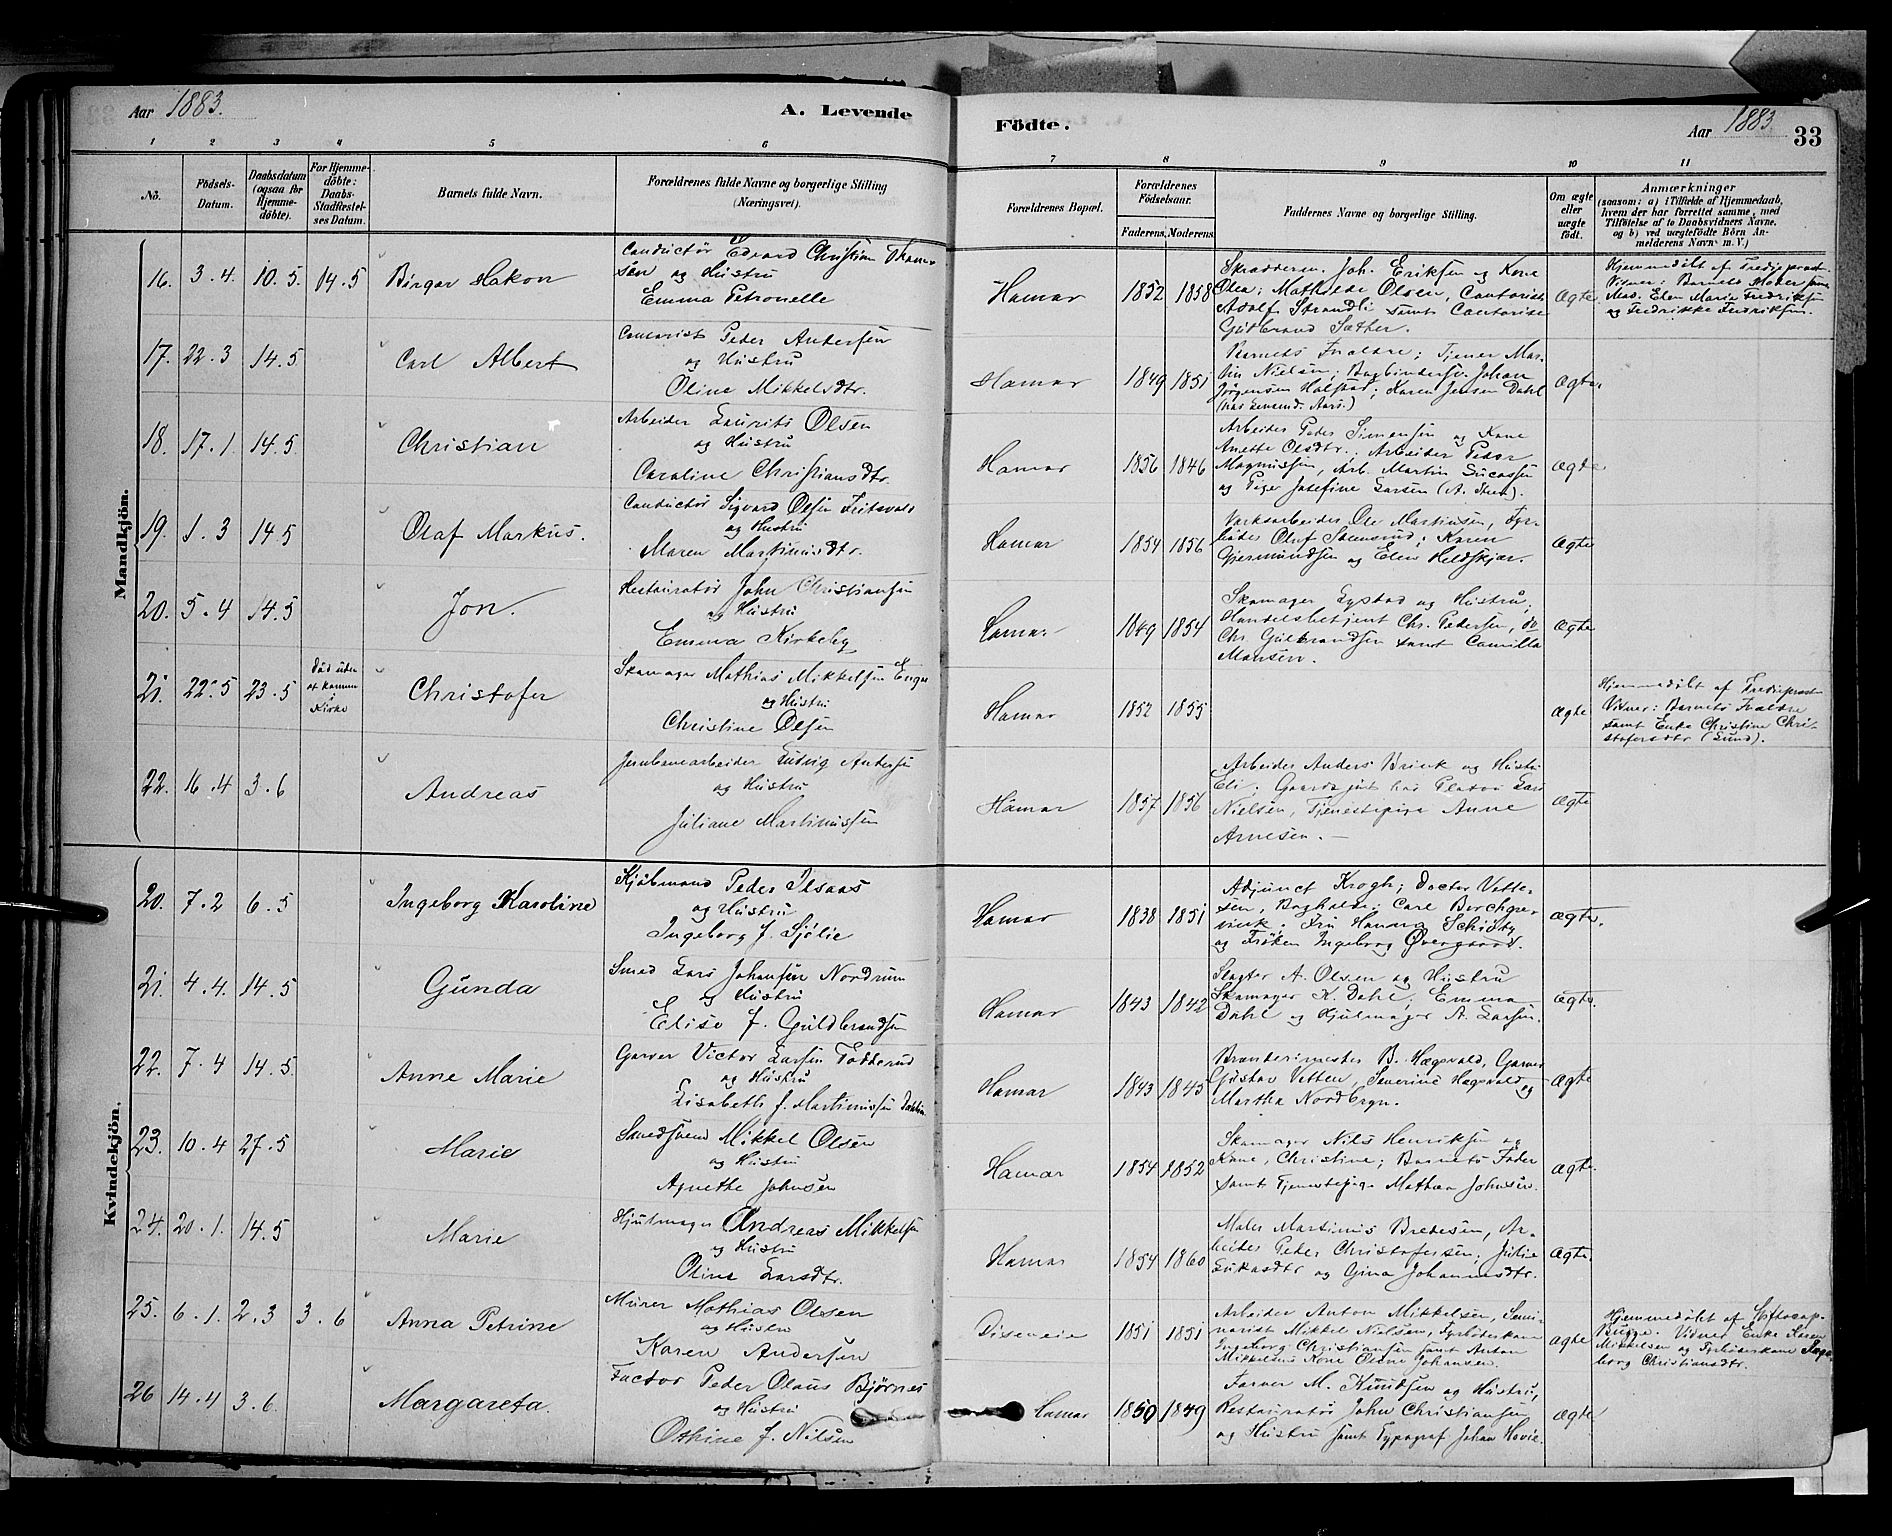 Aar 1883.
A. Levende
Födte.
Aar 1883.
33
1 2 3 4 5 6 7 8 9 10 11
No.
Födsels-
Datum.
Daabsdatum
(ogsaa for
Hjemme-
döbte).
For Hjemme-
döbte:
Daabs-
Stadfæstel-
ses Datum.
Barnets fulde Navn.
Forældrenes fulde Navne og borgerlige Stilling
(Næringsvei).
Forældrenes Bopæl.
Forældrenes
Födselsaar.
Faderens. Moderens.
Faddernes Navne og borgerlige Stilling.
Om ægte
eller
uægte
födt.
Anmærkninger
(saasom: a) i Tilfælde af Hjemmedaab,
hvem der har forrettet samme, med
Tilföielse af to Daabsvidners Navne,
og b) ved uægtefödte Börn An-
melderens Navn m. V.)
Mandkjön.
16. 3.4 10.5. 14.5 Birger Hakon
Conductør Edvard Christian
og Hustru
Emma Petronelle
Hamar 1852 1858
Skrædderm. Joh. Eriksen og Kone
Olea; Mathilde Olsen, Contorist
Adolf Strandli samt Contorist
Gulbrand Sæther.
Ægte
Hjemmedøbt af
Vidner: Barnets Moder
Mad. Elen Marie Fredriksen
og Fredrikke Fredriksen.
17. 22.3 14.5 Carl Albert
Contorist Peder Andersen
og Hustru
Oline Mikkelsdtr.
Hamar 1849 1851
Barnets Forældre; Tjener Mar-
tin Nielsen; Bogbindersv. Johan
Jørgensen Halstad; Karen Jensen Dahl
Ægte.
18. 17.1 14.5 Christian
Arbeider Laurits Olsen
og Hustru
Caroline Christiansdtr.
Hamar 1856 1846
Arbeider Peder Simensen og Kone
Anette Olsdtr.; Arbeider Peder
Magnussen, Arb. Martin
og Pige Josefine Larsen
Ægte
19. 1.3 14.5 Olaf Markus.
Conductør Sigvard Olsen
og Hustru
Maren Martinusdtr.
Hamar 1854 1856
Værksarbeider Ole Martinsen, Fyr-
bøder Oluf Stensrud; Karen
Gjermundsen og Elen
Ægte
20. 5.4 14.5 Jon.
Restauratør John Christiansen
og Hustru
Emma Kirkeby
Hamar 1849 1854
Skomager Lystad og Hustru;
Handelsbetjent Chr. Pedersen, do
Chr. Gulbrandsen samt Camilla
Monsen.
Ægte
21. 22.5 23.5
Død uden
at komme
i
Kirke
Christofer
Skomager Mathias Mikkelsen Engen
og Hustru
Christine Olsen
Hamar 1852 1855
Ægte
Hjemmedøbt af
Vidner: Barnets Forældre
samt Enke Christine Chri-
stofersdtr (Lund).
22. 16.4 3.6 Andreas
Jernbanearbeider Ludvig Andersen
og Hustru
Juliane Martinussen
Hamar 1857 1856
Arbeider Anders Brink og Hustru
Eli; Gaardsgut hos Lars
Nielsen, Tjenestepige Anne
Arnesen.
Ægte
Kvindekjön.
20. 7.2 6.5 Ingeborg Karoline
Kjøbmand Peder Ilsaas
og Hustru
Ingeborg f. Sjølie
Hamar 1838 1851
Adjunct Krogh; Doctor Vette-
sen, Bogholder Carl Borchgre-
vink. Fru Hanna Schiøtz
og Frøken Ingeborg Øvergaard.
Ægte.
21. 4.4. 14.5 Gunda
Smed Lars Johansen Nordrum
og Hustru
Elise f. Guldbrandsen
Hamar 1843 1842
Slagter A. Olsen og Hustru
Skomager K. Dahl; Emma
Dahl og Hjulmager A. Larsen.
Ægte.
22. 7.4 14.5. Anne Marie
Garver Victor Larsen Fodderud
og Hustru
Lisabeth f. Martinussen
Hamar 1843 1843
Brændermester B. Hægsvold, Garver
Gustav Vetten, Severine Hægsvold og
Martha
Ægte
23. 10.4 27.5 Marie
Smedsvend Mikkel Olsen
og Hustru
Agnethe Johnsen
Hamar 1854 1852
Skomager Nils Henriksen og
Kone, Christine; Barnets Fader
samt Tjenestepige Mathea Johnsen.
Ægte.
24. 20.1. 14.5 Marie
Hjulmager Andreas Mikkelsen
og Hustru
Oline Larsdtr.
Hamar 1854 1860
Maler Martinus Bredesen, Ar-
beider Peder Christofersen; Julie
Lukasdtr og Gina Johannesdtr.
Ægte.
25. 6.1. 2.3 3.6 Anna Petrine
Murer Mathias Olsen
og Hustru
Karen Andersen
Diseneie 1851 1851
Arbeider Anton Mikkelsen, Semi-
narist Mikkel Nielsen, Fyrbøderkone
Ingeborg Christiansen samt Anton
Mikkelsens Kone Oline Johansen.
Ægte
Hjemmedøbt af Stiftscap.
Bugge. Vidner Enke Karen
Mikkelsen og Fyrbøderkone Inge-
borg Christiansdtr.
26 14.4 3.6. Margareta.
Factor Peder Olaus Bjørnes
og Hustru
Othine f. Nilsen
Hamar 1850 1849
Farver M. Knudsen og Hustru,
Restauratør John Christiansen
og Hustru samt Typograf Johan Hovie.
Ægte